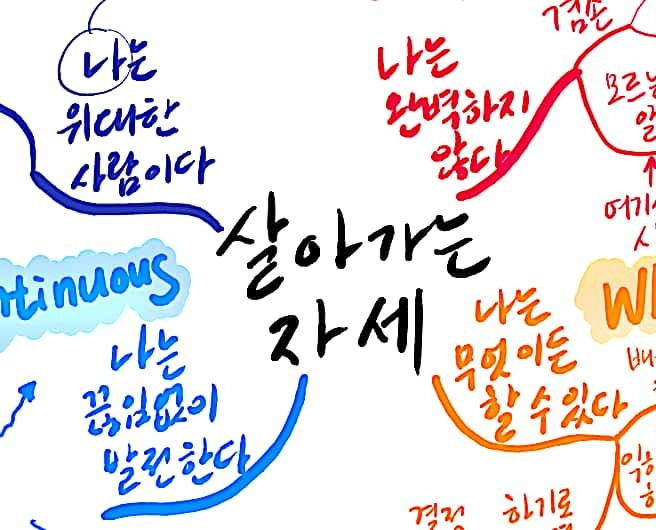 나는
위대한
사람이다
나는
완벽하지
않다
겸손
살아가는
자세
나는
끊임없이
발전한다
나는
무엇이든
할 수 있다
결정
하기로